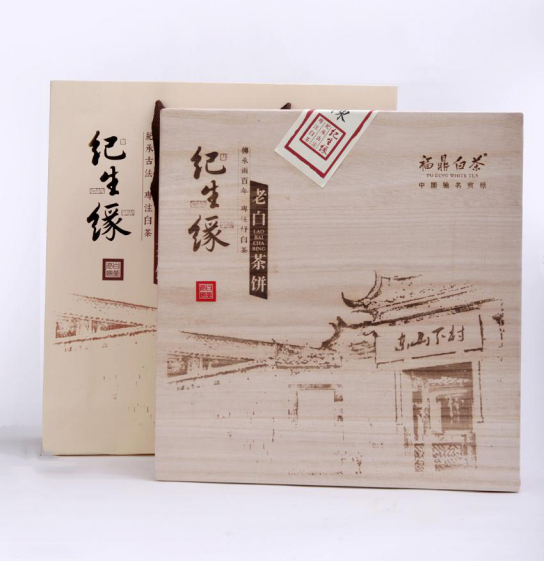 纪生缘
紀承古法 專注白茶
纪生缘
傳承兩百年 專注好白茶
老白茶饼
LAO
BAI
CHA
BING
纪生缘
福鼎白茶
FU DING WHITE TEA
中國馳名商標
东山下村